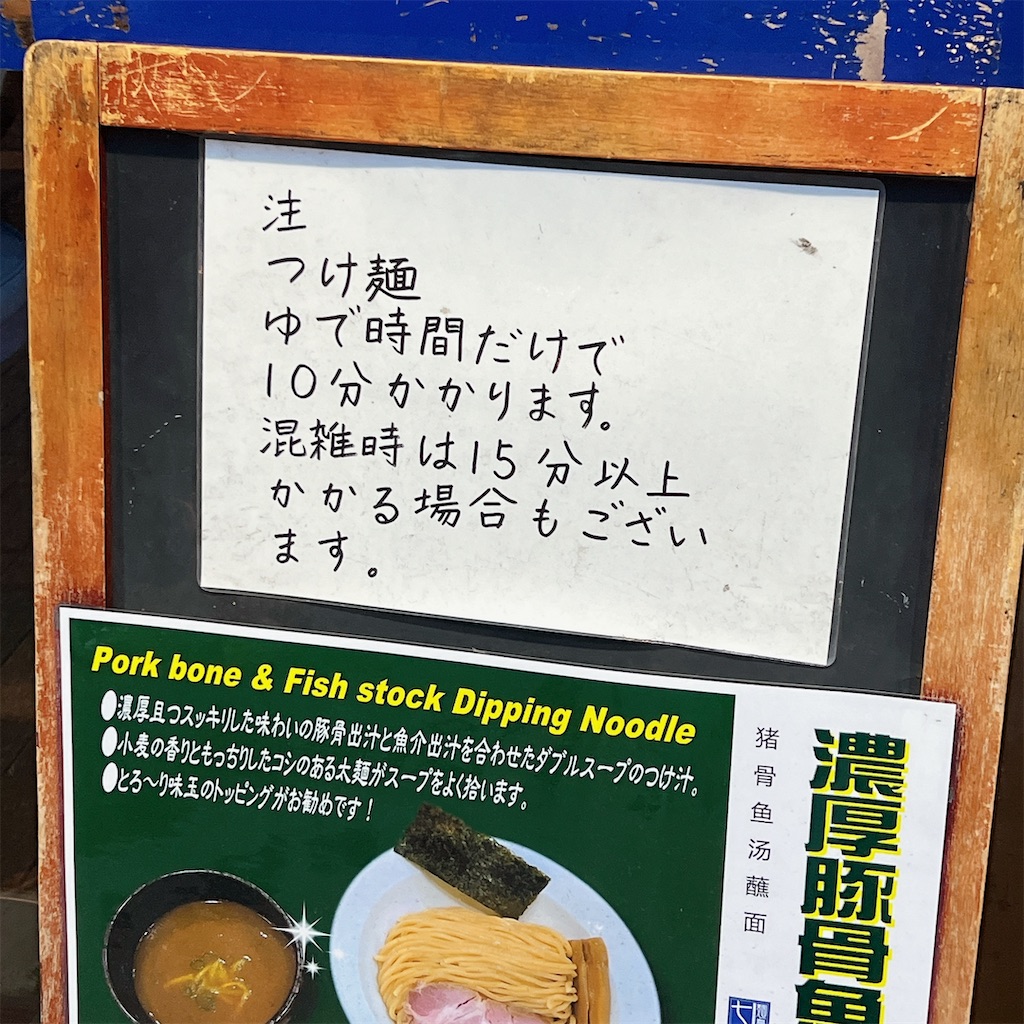 注
つけ麺
ゆで時間だけで
10分かかります。
混雑時は15分以上
かかる場合もござい
ます。
Pork bone & Fish stock Dipping Noodle
●濃厚且つスッキリした味わいの豚骨出汁と魚介出汁を合わせたダブルスープのつけ汁。
●小麦の香りともっちりしたコシのある太麺がスープをよく拾います。
●とろ〜り味玉のトッピングがお勧めです!
猪骨鱼汤蘸面
濃厚豚骨魚